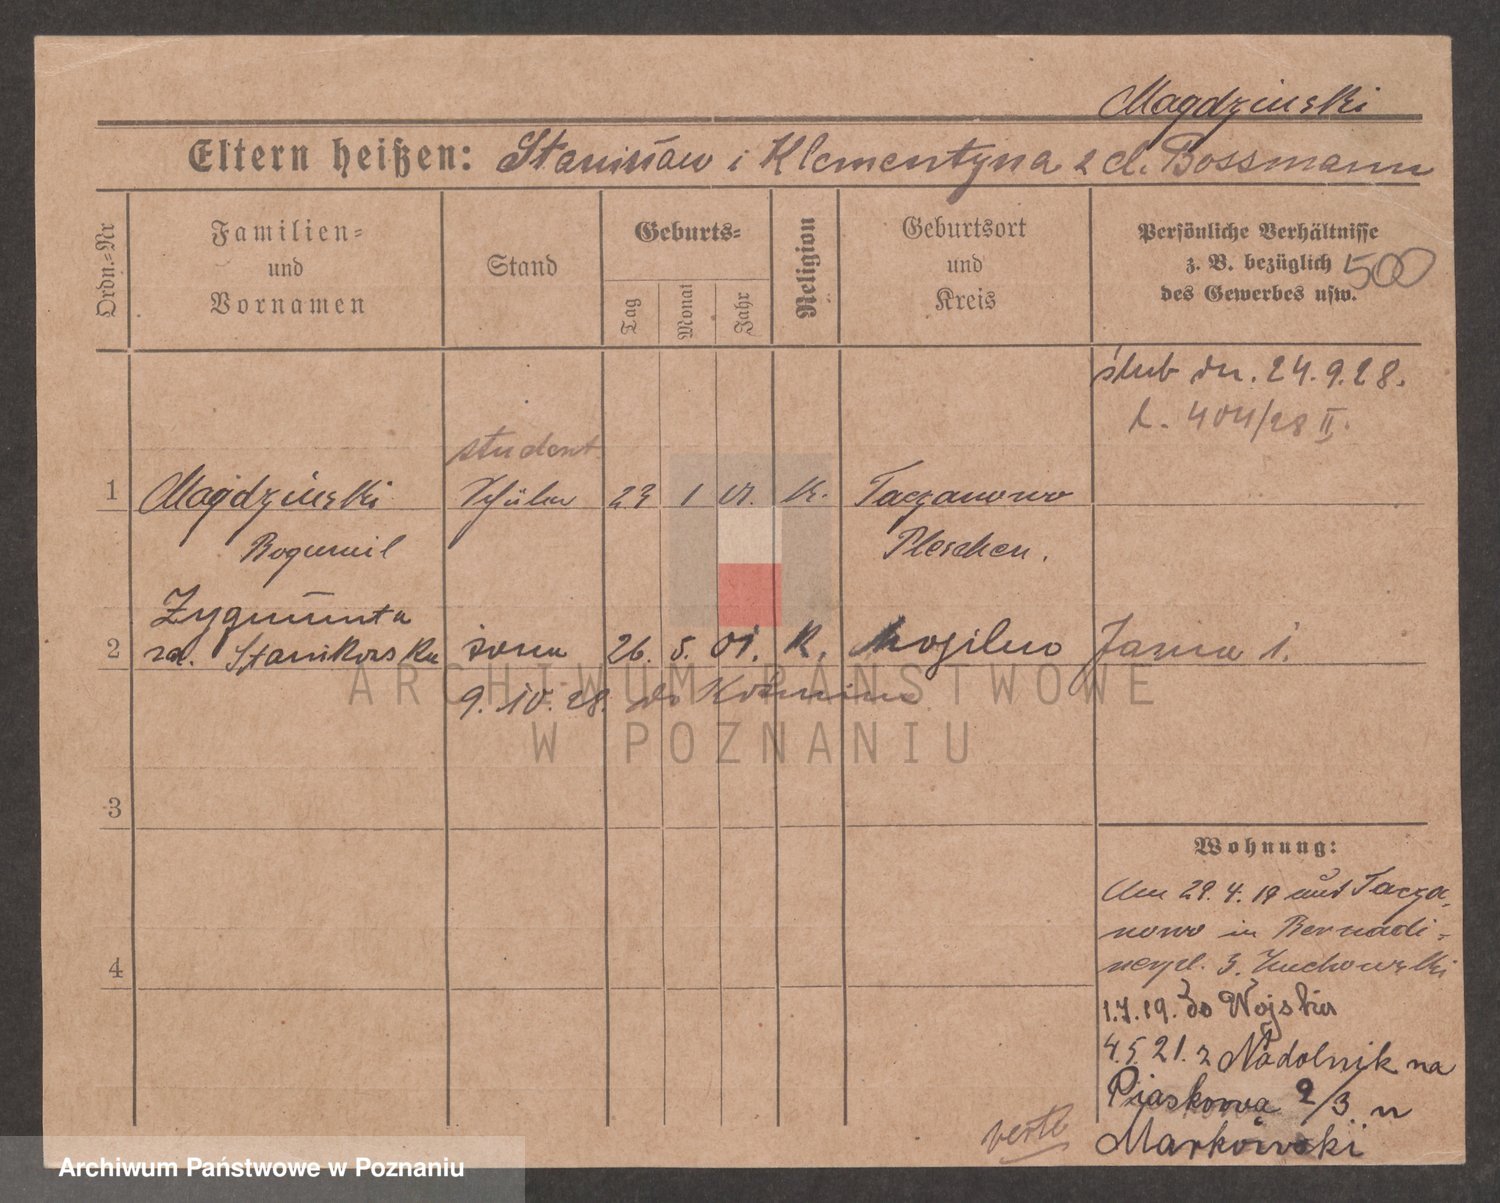 Magdziński
Eltern heißen: Stanisław i Klementyna z d. Bossmann
Ordn.=Nr
Familien=
und
Vornamen
Stand
Geburts=
Tag
Monat
Jahr
Religion
Geburtsort
und
Kreis
Persönliche Verhältnisse
z. B. bezüglich
des Gewerbes usw.
500
ślub dn. 24.9.28.
L. 404/28 II.
student
1 Magdziński Schüler 23 1 01. K. Taczanowo
Bogumil Pleschen.
Zygmunta
2 zd. Stanikowska żona 26. 5. 01. K. Mogilno Janna i.
9. 10. 28. do Koźmina
3
Wohnung:
Um 29. 4. 19 aus Tacza=
nowo in Bernadi=
nerpl. 3. Zuchowski
4
1.7.19. do Wojska
4.5.21. z Nadolnik na
Piaskowa 2/3 u
Markowski
verte
ARCHIWUM PAŃSTWOWE
W POZNANIU
Archiwum Państwowe w Poznaniu